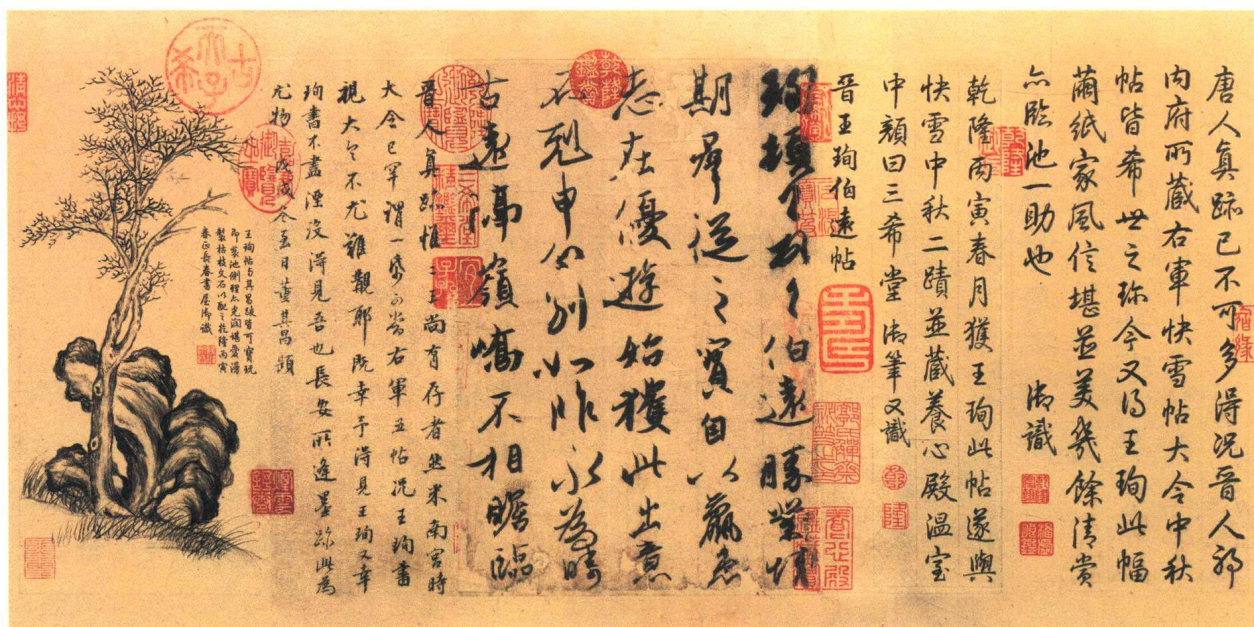 唐人真跡已不可多得況晉人耶
內府所藏右軍快雪帖大令中秋
帖皆希世之珍今又得王珣此幅
繭紙家風信堪並美幾餘清賞
亦臨池一助也 御識
乾隆丙寅春月獲王珣此帖遂與
快雪中秋二蹟並藏養心殿溫室
中顏曰三希堂 御筆又識
晉王珣伯遠帖
珣頓首頓首伯遠勝業情
期群從之寶自以羸患
志在優遊始獲此出意
不剋申分別如昨永為疇
古遠隔嶺嶠不相瞻臨
晉人真跡惟二王尚有存者然米南宮時
大令已罕謂一紙可當右軍五帖況王珣書
視大令不尤難覯耶既幸予得見王珣又幸
珣書不盡湮沒得見吾也長安所逢墨跡此為
尤物 戊戌冬至日董其昌題
王珣帖與其昌跋皆可寶玩
即裝池側理亦光潤堪愛漫
製枯枝文石以配之乾隆丙寅
春正長春書屋御識
古希天子
乾隆